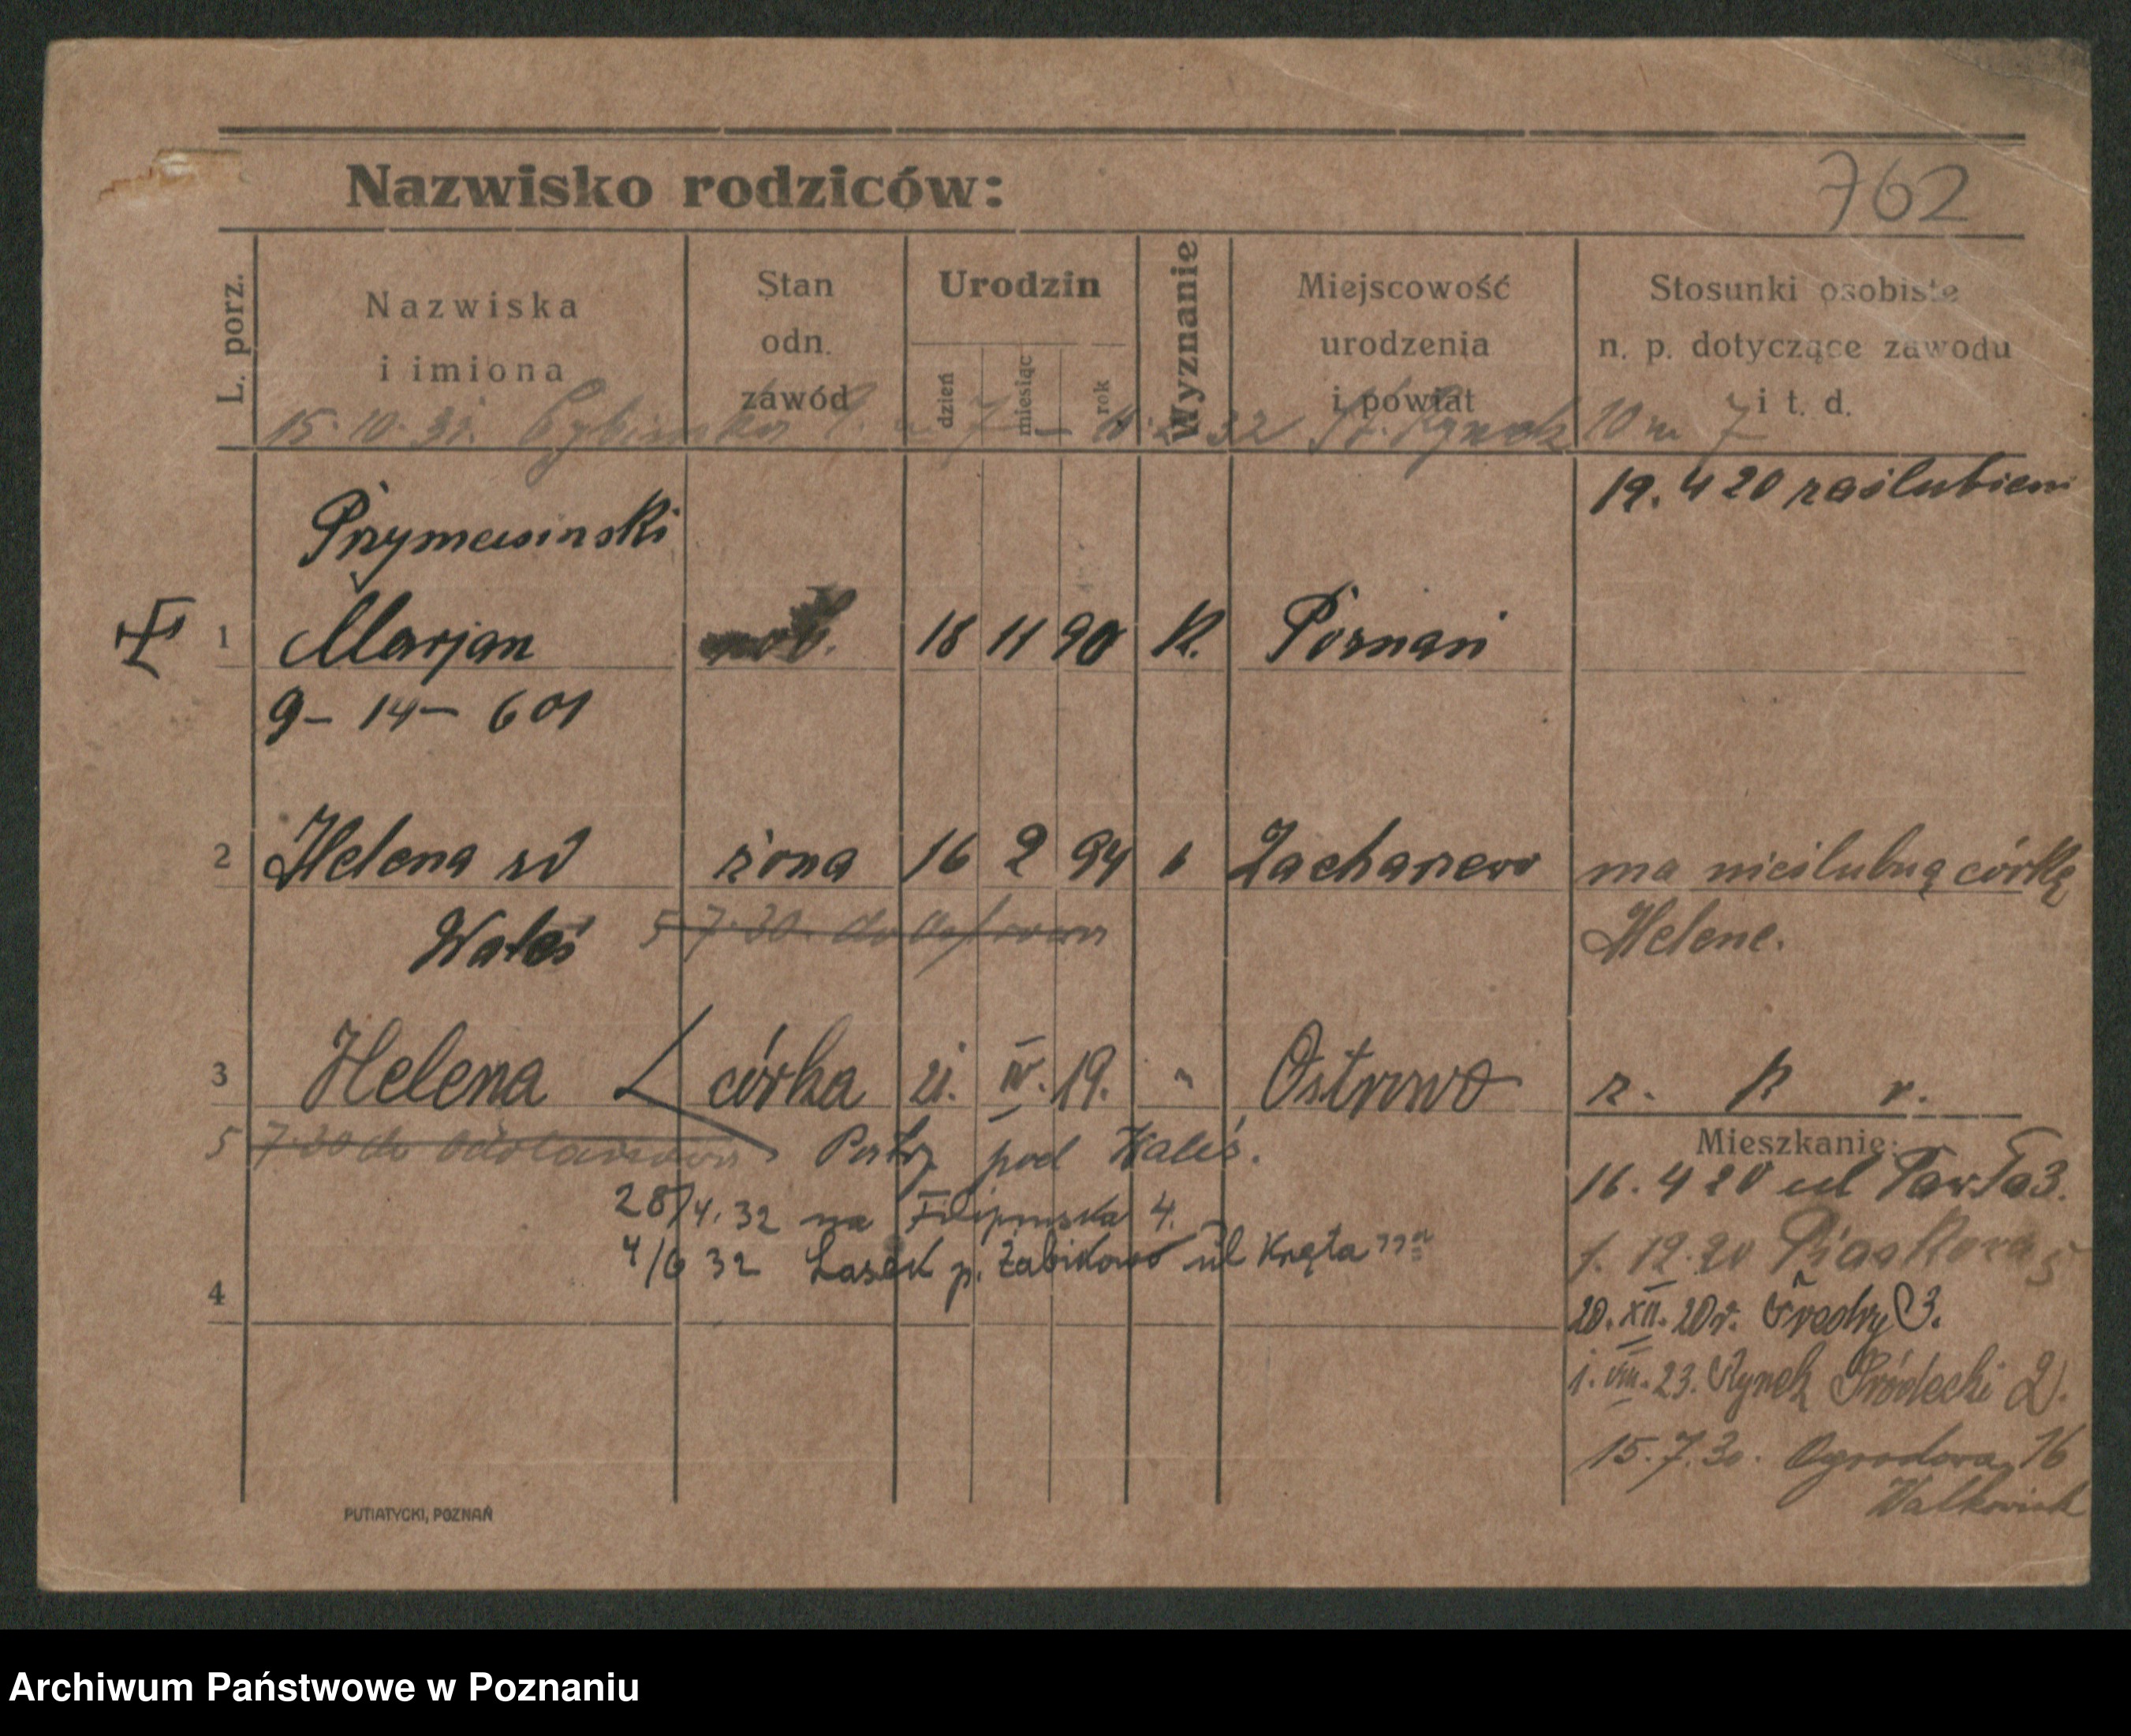 Nazwisko rodziców:
762
L. porz.
Nazwiska
i imiona
Stan
odn.
zawód
Urodzin
dzień
miesiąc
rok
Wyznanie
Miejscowość
urodzenia
i powiat
Stosunki osobiste
n. p. dotyczące zawodu
i t. d.
15. 10. 31. 7 32 St. Rynek 10 m 7
19. 4 20 zaślubieni
1
Marjan
rob.
18 11 90 K. Poznań
9 - 14 - 601
2
Helena
żona
16 2 94
ma nieślubną córkę
Wałęś
5 7. 30. do Ostrowa
Helene.
3
Helena
córka
21. IV. 19. " Ostrowo
z. k r.
5 7 30 do
Patrz pod Wałęś.
Mieszkanie:
16. 4 20 ul Pawła 3.
28/4. 32 na Filipińska 4.
4/6 32 Lasek p. Żabikowo ul Kręta
1. 12. 20 Piaskowa 5
4
20. XII. 20r. Fredry 3.
1. VIII. 23. Rynek Śródecki 2.
15. 7. 30. Ogrodowa 16
PUTIATYCKI, POZNAŃ
Archiwum Państwowe w Poznaniu